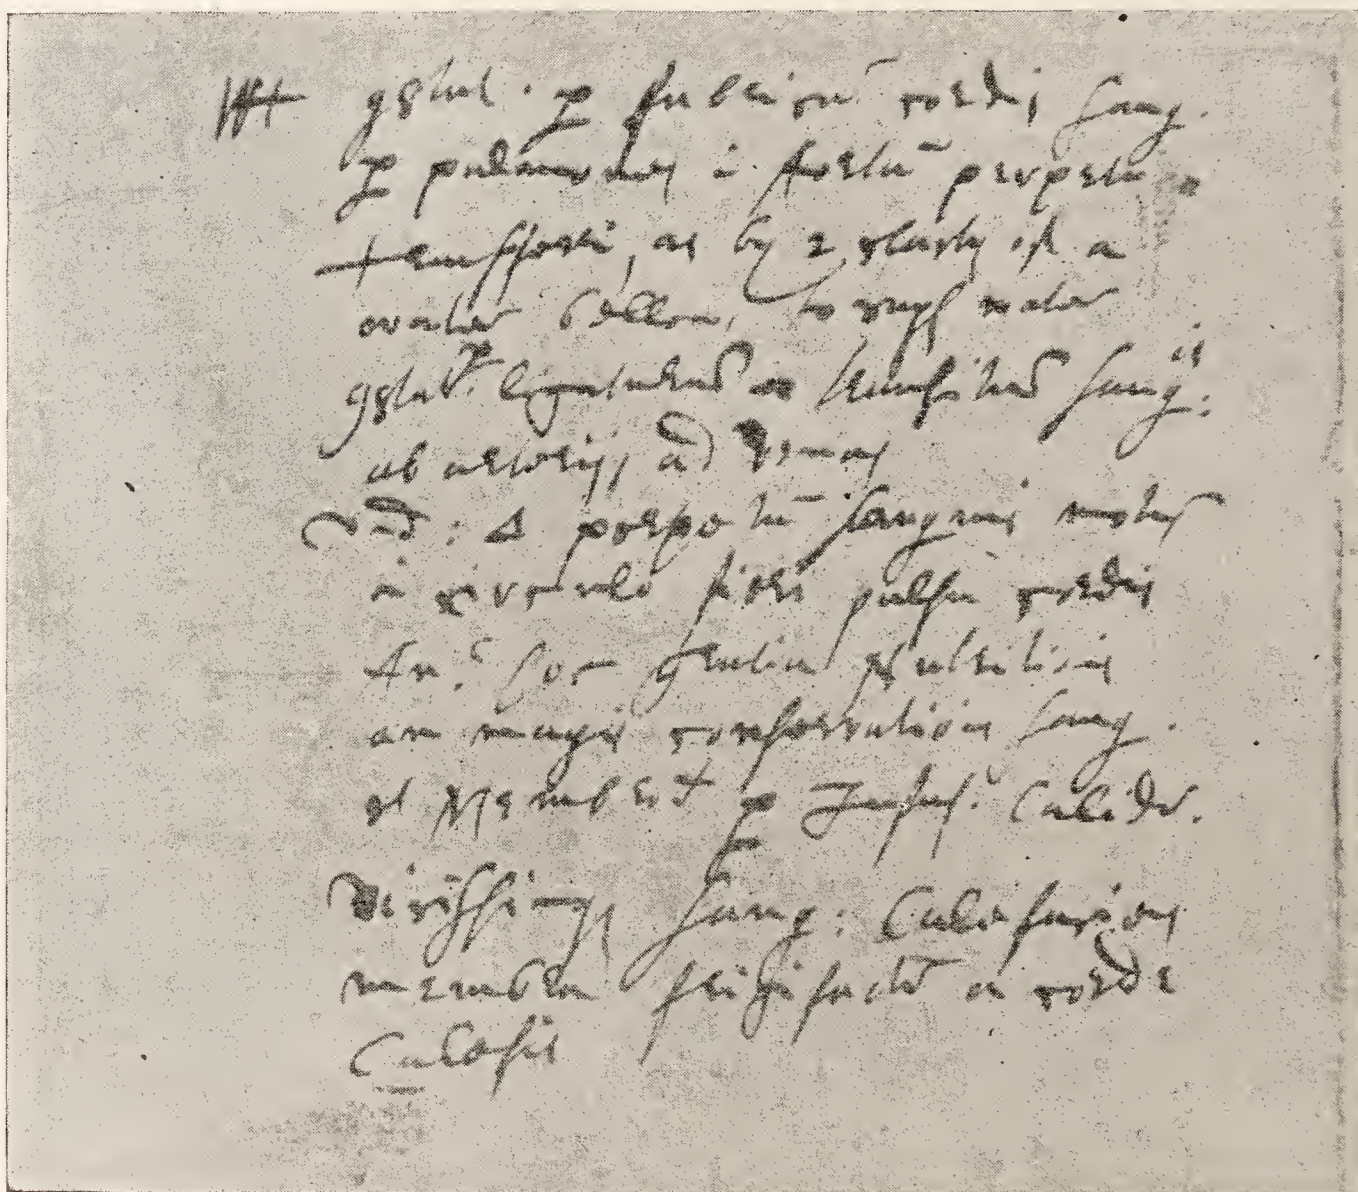 WH constat per fabricam cordis sang.
per pulmones in Aortam perpetuo
transferri, as by 2 clacks of a
water bellows, to rayse water
constat per ligaturam transitum sang:is
ab arterijs ad venas
vnde : Δ perpetuum sanguinis motum
in circulo fieri pulsu cordis
An? hoc gratia Nutritionis
an magis conservationis sang.
et Membrorum per Infus: calidam
vicissimque sang: Calefaciens
membra frigifactum a corde
Calefit